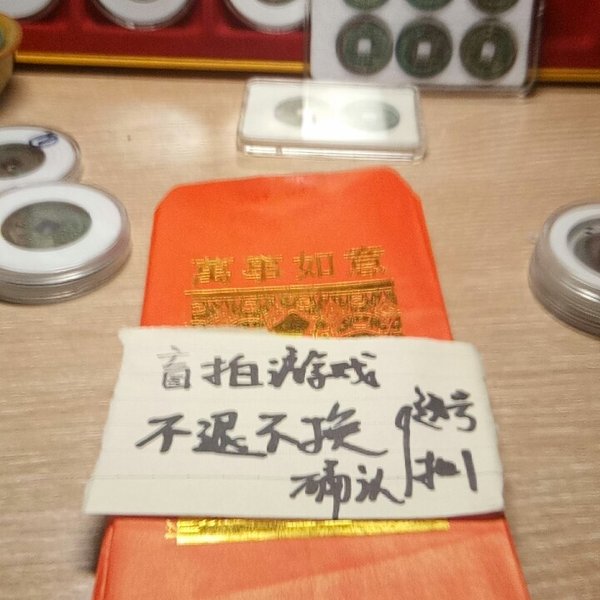 萬事如意
盲拍游戏
不退不换
确认
选号
拍